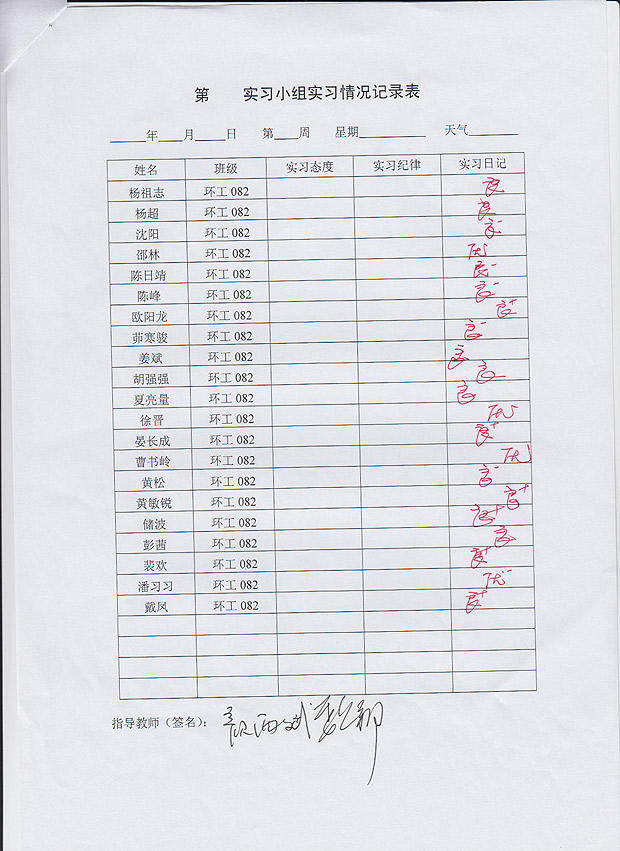 第 实习小组实习情况记录表
____年___月____日 第___周 星期________ 天气______
姓名 班级 实习态度 实习纪律 实习日记
杨祖志 环工 082 良
杨超 环工 082 良
沈阳 环工 082 良-
邵林 环工 082 优-
陈日靖 环工 082 良-
陈峰 环工 082 良-
欧阳龙 环工 082 良+
茆寒骏 环工 082 良-
姜斌 环工 082 良
胡强强 环工 082 良
夏亮量 环工 082 良
徐晋 环工 082 优-
晏长成 环工 082 良+
曹书岭 环工 082 优
黄松 环工 082 良-
黄敏锐 环工 082 良+
储波 环工 082 良+
彭茜 环工 082 良
裴欢 环工 082 良+
潘习习 环工 082 优-
戴凤 环工 082 良+
指导教师（签名）：